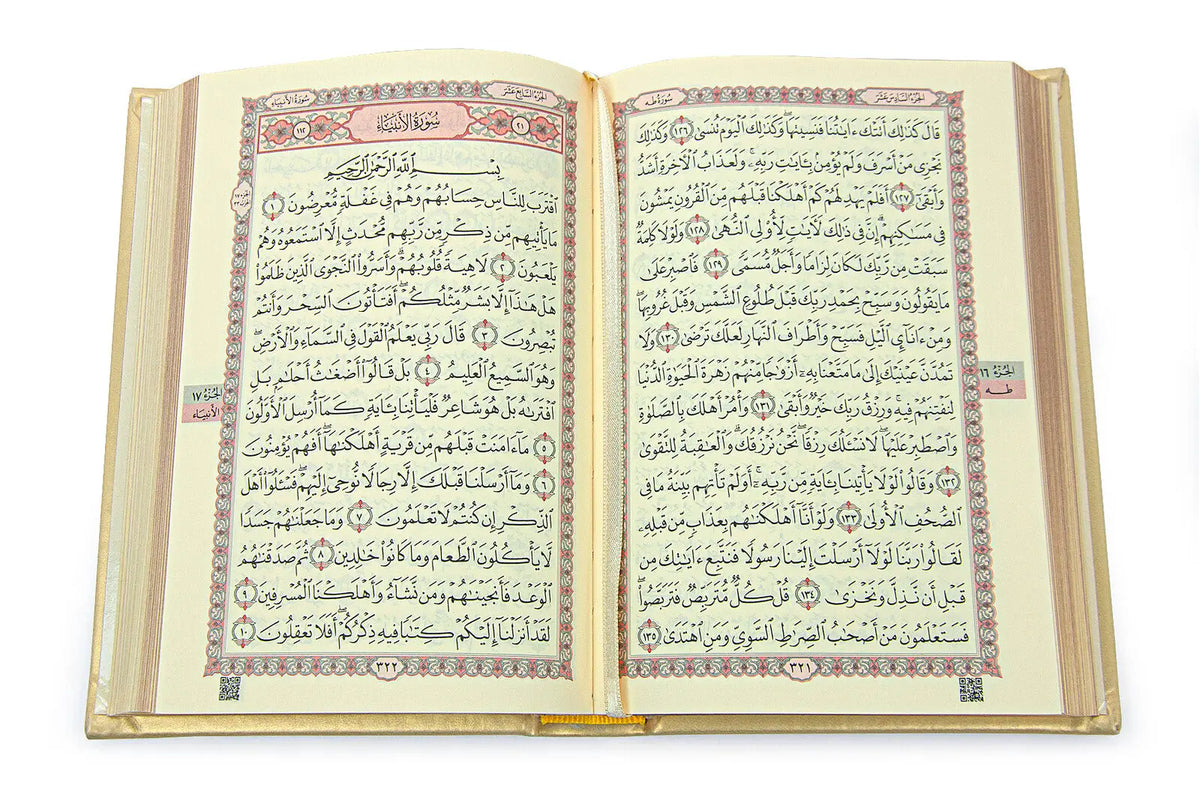 الجزء السادس عشر
سورة طه
قَالَ كَذَٰلِكَ أَتَتْكَ ءَايَٰتُنَا فَنَسِيتَهَا وَكَذَٰلِكَ ٱلْيَوْمَ تُنسَىٰ ١٢٦ وَكَذَٰلِكَ
نَجْزِى مَنْ أَسْرَفَ وَلَمْ يُؤْمِنۢ بِـَٔايَٰتِ رَبِّهِۦ وَلَعَذَابُ ٱلْءَاخِرَةِ أَشَدُّ
وَأَبْقَىٰٓ ١٢٧ أَفَلَمْ يَهْدِ لَهُمْ كَمْ أَهْلَكْنَا قَبْلَهُم مِّنَ ٱلْقُرُونِ يَمْشُونَ
فِى مَسَٰكِنِهِمْ إِنَّ فِى ذَٰلِكَ لَءَايَٰتٍ لِّأُو۟لِى ٱلنُّهَىٰ ١٢٨ وَلَوْلَا كَلِمَةٌ
سَبَقَتْ مِن رَّبِّكَ لَكَانَ لِزَامًا وَأَجَلٌ مُّسَمًّى ١٢٩ فَٱصْبِرْ عَلَىٰ
مَا يَقُولُونَ وَسَبِّحْ بِحَمْدِ رَبِّكَ قَبْلَ طُلُوعِ ٱلشَّمْسِ وَقَبْلَ غُرُوبِهَا
وَمِنْ ءَانَآئِ ٱلَّيْلِ فَسَبِّحْ وَأَطْرَافَ ٱلنَّهَارِ لَعَلَّكَ تَرْضَىٰ ١٣٠ وَلَا
تَمُدَّنَّ عَيْنَيْكَ إِلَىٰ مَا مَتَّعْنَا بِهِۦٓ أَزْوَٰجًا مِّنْهُمْ زَهْرَةَ ٱلْحَيَوٰةِ ٱلدُّنْيَا
لِنَفْتِنَهُمْ فِيهِ وَرِزْقُ رَبِّكَ خَيْرٌ وَأَبْقَىٰ ١٣١ وَأْمُرْ أَهْلَكَ بِٱلصَّلَوٰةِ
وَٱصْطَبِرْ عَلَيْهَا لَا نَسْـَٔلُكَ رِزْقًا نَّحْنُ نَرْزُقُكَ وَٱلْعَٰقِبَةُ لِلتَّقْوَىٰ
١٣٢ وَقَالُوا۟ لَوْلَا يَأْتِينَا بِـَٔايَةٍ مِّن رَّبِّهِۦٓ أَوَلَمْ تَأْتِهِم بَيِّنَةُ مَا فِى
ٱلصُّحُفِ ٱلْأُولَىٰ ١٣٣ وَلَوْ أَنَّآ أَهْلَكْنَٰهُم بِعَذَابٍ مِّن قَبْلِهِۦ
لَقَالُوا۟ رَبَّنَا لَوْلَآ أَرْسَلْتَ إِلَيْنَا رَسُولًا فَنَتَّبِعَ ءَايَٰتِكَ مِن
قَبْلِ أَن نَّذِلَّ وَنَخْزَىٰ ١٣٤ قُلْ كُلٌّ مُّتَرَبِّصٌ فَتَرَبَّصُوا۟
فَسَتَعْلَمُونَ مَنْ أَصْحَٰبُ ٱلصِّرَٰطِ ٱلسَّوِىِّ وَمَنِ ٱهْتَدَىٰ ١٣٥
٣٢١
الجزء ١٦
طه
الجزء السابع عشر
سورة الأنبياء
٢١ سورة الأنبياء ١١٢
بِسْمِ ٱللَّهِ ٱلرَّحْمَٰنِ ٱلرَّحِيمِ
ٱقْتَرَبَ لِلنَّاسِ حِسَابُهُمْ وَهُمْ فِى غَفْلَةٍ مُّعْرِضُونَ ١
مَا يَأْتِيهِم مِّن ذِكْرٍ مِّن رَّبِّهِم مُّحْدَثٍ إِلَّا ٱسْتَمَعُوهُ وَهُمْ
يَلْعَبُونَ ٢ لَاهِيَةً قُلُوبُهُمْ وَأَسَرُّوا۟ ٱلنَّجْوَى ٱلَّذِينَ ظَلَمُوا۟
هَلْ هَٰذَآ إِلَّا بَشَرٌ مِّثْلُكُمْ أَفَتَأْتُونَ ٱلسِّحْرَ وَأَنتُمْ
تُبْصِرُونَ ٣ قَالَ رَبِّى يَعْلَمُ ٱلْقَوْلَ فِى ٱلسَّمَآءِ وَٱلْأَرْضِ
وَهُوَ ٱلسَّمِيعُ ٱلْعَلِيمُ ٤ بَلْ قَالُوٓا۟ أَضْغَٰثُ أَحْلَٰمٍۭ بَلِ
ٱفْتَرَىٰهُ بَلْ هُوَ شَاعِرٌ فَلْيَأْتِنَا بِـَٔايَةٍ كَمَآ أُرْسِلَ ٱلْأَوَّلُونَ
٥ مَآ ءَامَنَتْ قَبْلَهُم مِّن قَرْيَةٍ أَهْلَكْنَٰهَآ أَفَهُمْ يُؤْمِنُونَ
٦ وَمَآ أَرْسَلْنَا قَبْلَكَ إِلَّا رِجَالًا نُّوحِىٓ إِلَيْهِمْ فَسْـَٔلُوٓا۟ أَهْلَ
ٱلذِّكْرِ إِن كُنتُمْ لَا تَعْلَمُونَ ٧ وَمَا جَعَلْنَٰهُمْ جَسَدًا
لَّا يَأْكُلُونَ ٱلطَّعَامَ وَمَا كَانُوا۟ خَٰلِدِينَ ٨ ثُمَّ صَدَقْنَٰهُمُ
ٱلْوَعْدَ فَأَنجَيْنَٰهُمْ وَمَن نَّشَآءُ وَأَهْلَكْنَا ٱلْمُسْرِفِينَ ٩
لَقَدْ أَنزَلْنَآ إِلَيْكُمْ كِتَٰبًا فِيهِ ذِكْرُكُمْ أَفَلَا تَعْقِلُونَ ١٠
٣٢٢
الجزء ١٧
الأنبياء